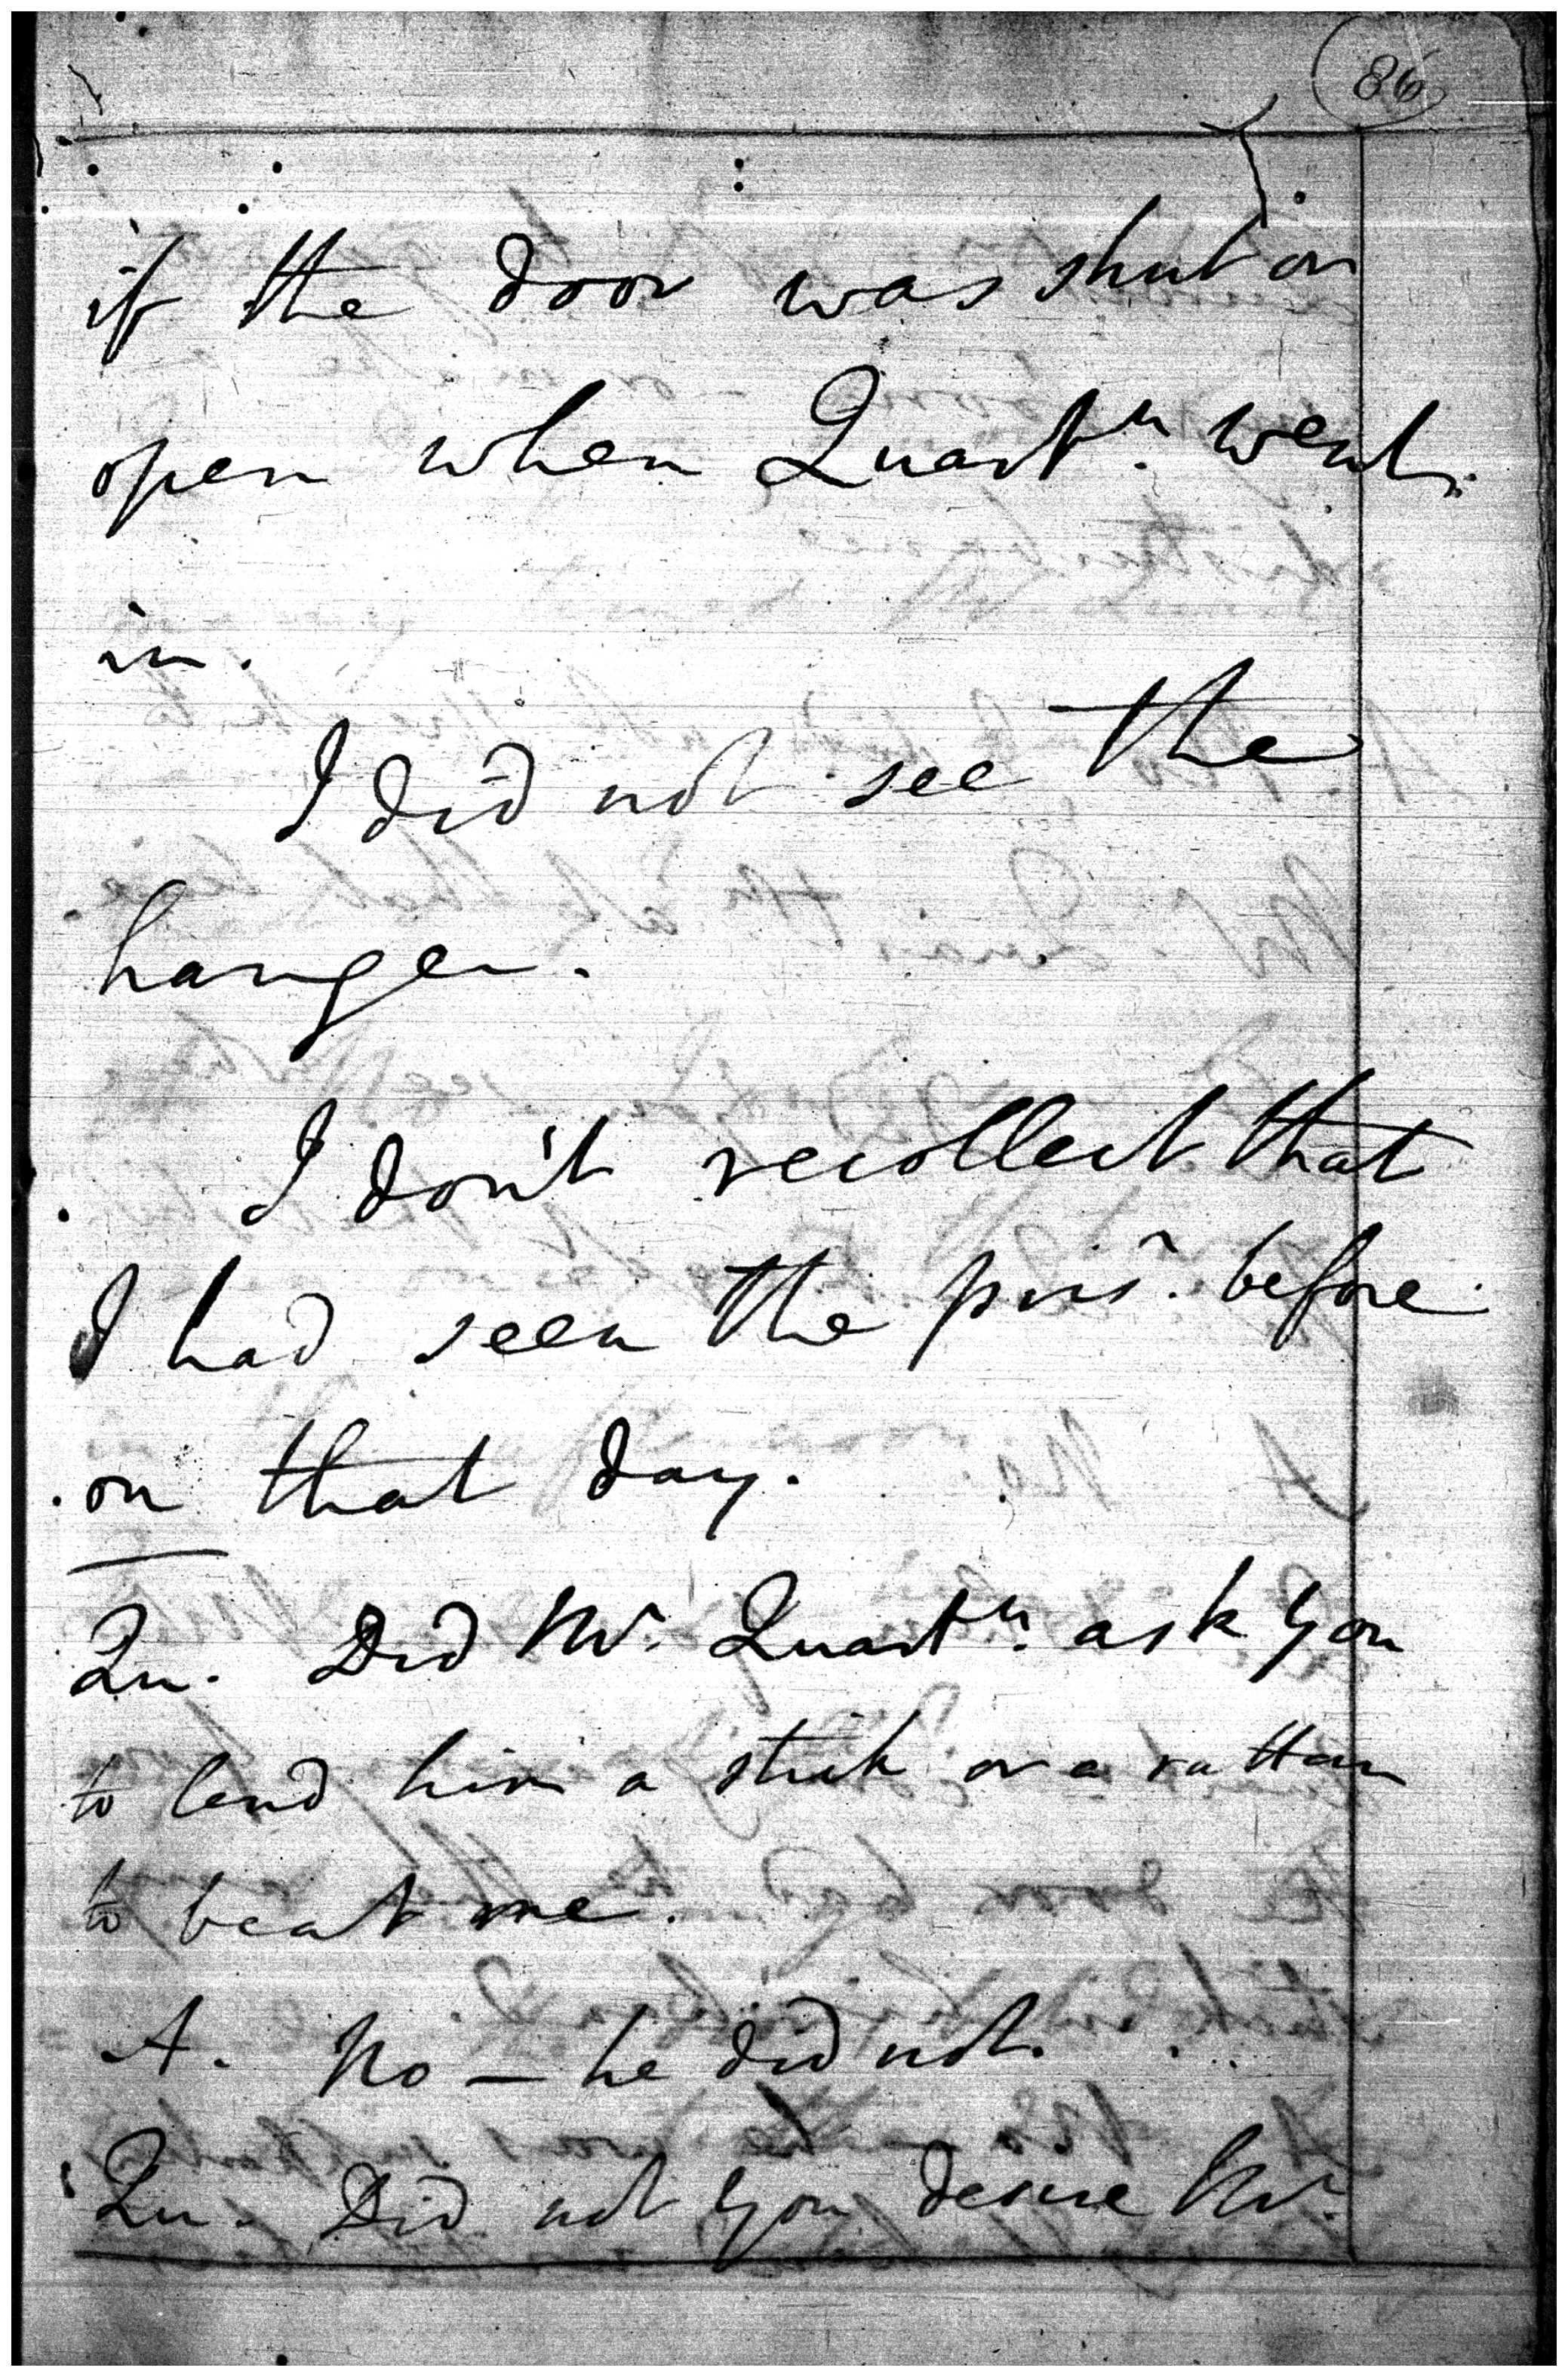 86
if the door was shut or
open when Quartr. went
in.
I did not see the
hanger.
I don't recollect that
I had seen the pris~. before
on that day.
Qu. Did Mr. Quartr. ask you
to lend him a stick or a rattan
to beat me.
A. No — he did not.
Qu. Did not you desire Mr.